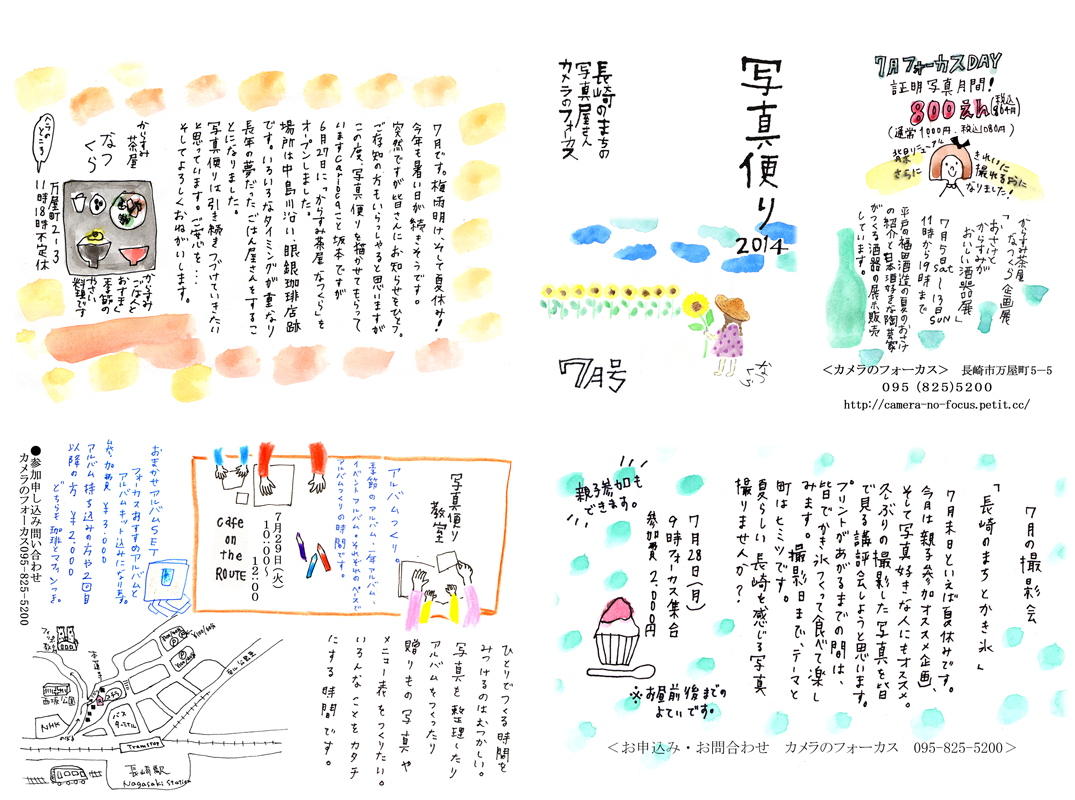 写真便り
2014
長崎のまちの
写真屋さん
カメラのフォーカス
7月号
なつくら
7月フォーカスDAY
証明写真月間!
800えん(税込864円)
(通常1000円.税込1080円)
背景リニューアル
さらに
きれいに
撮れるように
なりました!
からすみ茶屋
なつくら企画展
「おさけと
からすみが
おいしい酒器展」
7月5日sat〜13日SUN
11時から19時まで
平戸の福田酒造の夏のおさけ
の紹介と日本酒好きな陶芸家
がつくる酒器の展示販売
しています。
<カメラのフォーカス> 長崎市万屋町5−5
095 (825)5200
http://camera-no-focus.petit.cc/
7月です。梅雨明け、そして夏休み!
今年も暑い日が続きそうです。
突然ですが皆さんにお知らせをひとつ。
ご存知の方もいらっしゃると思いますが
この度、写真便りを描かせてもらって
いますcaribouこと坂本ですが
6月27日に「からすみ茶屋なつくら」を
オープンしました。
場所は中島川沿い眼銀珈琲店跡
です。いろいろなタイミングが重なり
長年の夢だったごはん屋さんをするこ
とになりました。
写真便りは引き続きつづけていきたい
と思っています。ご安心を…
そしてよろしくおねがいします。
からすみ
茶屋
なつくら
万屋町2-13
11時18時不定休
からすみ
ごはんと
おすまし
季節の
やさい
料理です
7月の撮影会
「長崎のまちとかき氷」
7月末日といえば夏休みです。
今月は親子参加オススメ企画、
そして写真好きな人にもオススメ。
久しぶりの撮影した写真を皆
で見る講評会しようと思います。
プリントがあがるまでの間は、
皆でかき氷つくって食べて楽し
みます。撮影日まで、テーマと
町はヒミツです。
夏らしい長崎を感じる写真
撮りませんか?
7月28日(月)
9時フォーカス集合
参加費 2,000円
親子参加も
できます。
※お昼前後までの
よていです。
<お申込み・お問合わせ カメラのフォーカス 095-825-5200>
写真便り
教室
アルバムつくり。
季節のアルバム・一年アルバム、
イベントアルバム・それぞれのペースで
アルバムつくりの時間です。
7月29日(火)
10:00〜
12:00
cafe
on
the
ROUTE
おまかせアルバムSET
フォーカスおすすめのアルバムと
アルバムキット込みになります。
参加費 ¥3,000
アルバム持ち込みの方や2回目
以降の方 ¥2,000
どちらも珈琲とマフィンつき。
●参加申し込み問い合わせ
カメラのフォーカス095-825-5200
ひとりでつくる時間を
みつけるのはむつかしい。
写真を整理したり
アルバムをつくったり
贈りもの写真や
メニュー表をつくりたい。
いろんなことをカタチ
にする時間です。
西坂公園
NHK
バス
ターミナル
Tramstop
長崎駅
Nagasaki Station